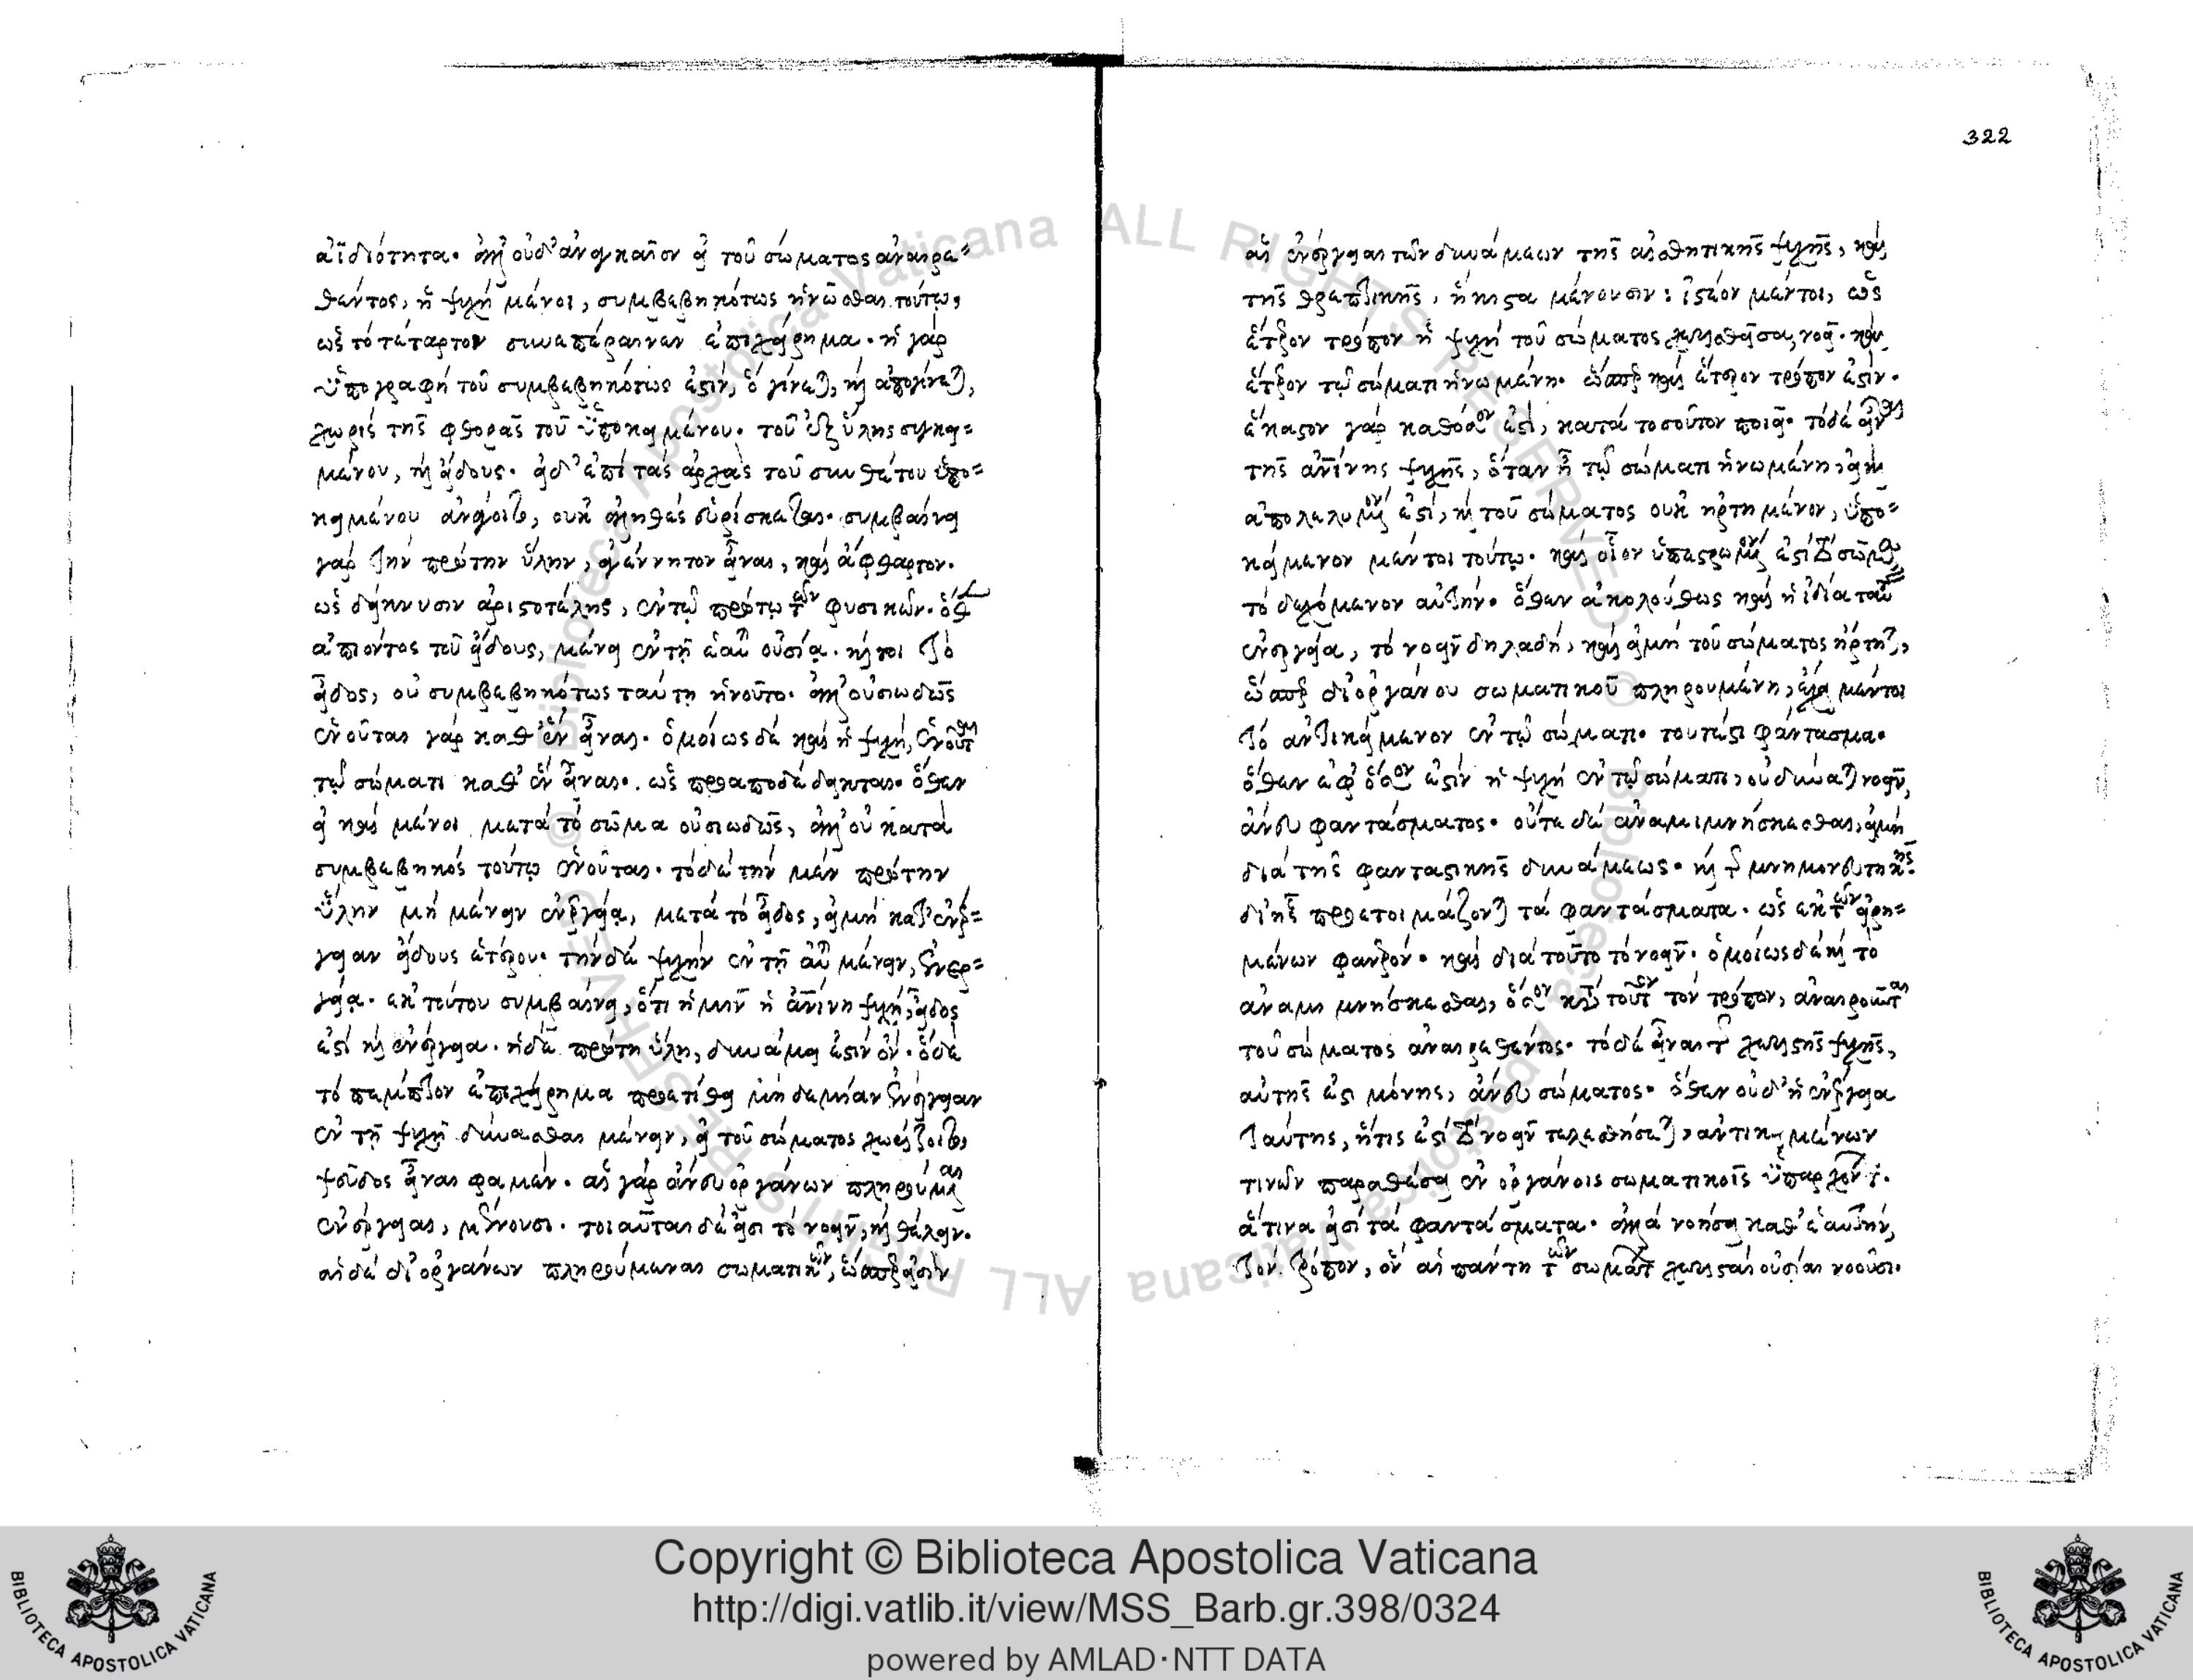 ἀϊδιότητα. ἀλλ' οὐδ' ἀναγκαῖον εἰ τοῦ σώματος ἀναιρε-
θέντος, ἡ ψυχή μένοι, συμβεβηκότως ἡνῶσθαι τούτω,
ὡς τό τέταρτον συνεπέραινεν ἐπιχείρημα. ἡ γάρ
ὑπογραφή τοῦ συμβεβηκότος ἐστίν, ὅ γίνεται, καί ἀπογίνεται,
χωρίς τῆς φθορᾶς τοῦ ὑποκειμένου. τοῦ ἐξ ὕλης συγκει-
μένου, καί εἴδους. εἰ δ' ἐπί τάς ἀρχάς τοῦ συνθέτου ὑπο-
κειμένου ἀνάγοιτο, οὐκ ἀληθές εὑρίσκεται. συμβαίνει
γάρ τήν πρώτην ὕλην, ἀγέννητον εἶναι, καί ἄφθαρτον.
ὡς δείκνυσιν ἀριστοτέλης, ἐν τῷ πρώτω τῶν φυσικῶν. ὅθεν
ἀπιόντος τοῦ εἴδους, μένει ἐν τῇ ἑαυτῆς οὐσίᾳ. καίτοι τό
εἶδος, οὐ συμβεβηκότως ταύτη ἡνοῦτο. ἀλλ' οὐσιωδῶς
ἑνοῦται γάρ καθ' ἕν εἶναι. ὁμοίως δέ καί ἡ ψυχή, ἑνοῦται
τῷ σώματι καθ' ἕν εἶναι. ὡς προαποδέδεικται. ὅθεν
εἰ καί μένοι μετά τό σῶμα οὐσιωδῶς, ἀλλ' οὐ κατά
συμβεβηκός τούτω ἑνοῦται. τό δέ τήν μέν πρώτην
ὕλην μή μένειν ἐνεργείᾳ, μετά τό εἶδος, εἰμή κατ' ἐνέρ-
γειαν εἴδους ἑτέρου. τήν δέ ψυχήν ἐν τῇ αὐτῇ μένειν, ἐνερ-
γείᾳ. ἐκ τούτου συμβαίνει, ὅτι ἡ μέν ἡ ἀνθρωπίνη ψυχή, εἶδος
ἐστί καί ἐνέργεια. ἡ δέ πρώτη ὕλη, δυνάμει ἐστίν ὄν. ὅ δέ
τό πέμπτον ἐπιχείρημα προετίθει μηδεμίαν ἐνέργειαν
ἐν τῇ ψυχῇ δύνασθαι μένειν, εἰ τοῦ σώματος χωρίζοιτο,
ψεῦδος εἶναι φαμέν. αἱ γάρ ἄνευ ὀργάνων πληρούμεναι
ἐνέργειαι, μένουσι. τοιαῦται δέ εἰσι τό νοεῖν, καί θέλειν.
αἱ δέ δι' ὀργάνων πληρούμεναι σωματικῶν, ὥσπερ εἰσίν
322
αἱ ἐνέργειαι τῶν δυνάμεων τῆς αἰσθητικῆς ψυχῆς, καί
τῆς θρεπτικῆς, ἥκιστα μένουσιν: ἰστέον μέντοι, ὡς
ἕτερον τρόπον ἡ ψυχή τοῦ σώματος χωρισθεῖσα, νοεῖ. καί
ἕτερον τῷ σώματι ἡνωμένη. ὥσπερ καί ἕτερον τρόπον ἐστίν.
ἕκαστον γάρ καθόσον ἐστί, κατά τοσοῦτον ποιεῖ. τό δέ εἶναι
τῆς ἀνθρωπίνης ψυχῆς, ὅταν ᾖ τῷ σώματι ἡνωμένη, εἰ καί
ἀπολελυμένον ἐστί, καί τοῦ σώματος οὐκ ἠρτημένον, ὑπο-
κείμενον μέντοι τούτω. καί οἷον ὑπεστρωμένον ἐστί τό σῶμα
τό δεχόμενον αὐτήν. ὅθεν ἀκολούθως καί ἡ ἰδία ταύτης
ἐνέργεια, τό νοεῖν δηλαδή, καί εἰ μή τοῦ σώματος ἤρτηται,
ὥσπερ δι' ὀργάνου σωματικοῦ πληρουμένη, ἔχει μέντοι
τό ἀντικείμενον ἐν τῷ σώματι. τουτέστι φάντασμα.
ὅθεν ἐφ' ὅσον ἐστίν ἡ ψυχή ἐν τῷ σώματι, οὐ δύναται νοεῖν,
ἄνευ φαντάσματος. οὔτε δέ ἀναμιμνήσκεσθαι, εἰμή
διά τῆς φανταστικῆς δυνάμεως. καί τῆς μνημονευτικῆς.
δι' ἧς προετοιμάζονται τά φαντάσματα. ὡς ἐκ τῶν εἰρη-
μένων φανερόν. καί διά τοῦτο τό νοεῖν. ὁμοίως δέ καί τό
ἀναμιμνήσκεσθαι, ὅσον κατά τοῦτον τόν τρόπον, ἀναιροῦνται
τοῦ σώματος ἀναιρεθέντος. τό δέ εἶναι τῆς χωριστῆς ψυχῆς,
αὐτῆς ἐστι μόνης, ἄνευ σώματος. ὅθεν οὐδ' ἡ ἐνέργεια
ταύτης, ἥτις ἐστί τό νοεῖν τελεσθήσεται, ἀντικειμένων
τινῶν παραθέσει ἐν ὀργάνοις σωματικοῖς ὑπαρχόντων.
ἅτινα εἰσί τά φαντάσματα. ἀλλά νοήσει καθ' ἑαυτήν,
τόν τρόπον, ὅν αἱ πάντη τῶν σωμάτων χωρισταί οὐσίαι νοοῦσι.
Copyright © Biblioteca Apostolica Vaticana
http://digi.vatlib.it/view/MSS_Barb.gr.398/0324
powered by AMLAD·NTT DATA
BIBLIOTECA APOSTOLICA VATICANA
BIBLIOTECA APOSTOLICA VATICANA